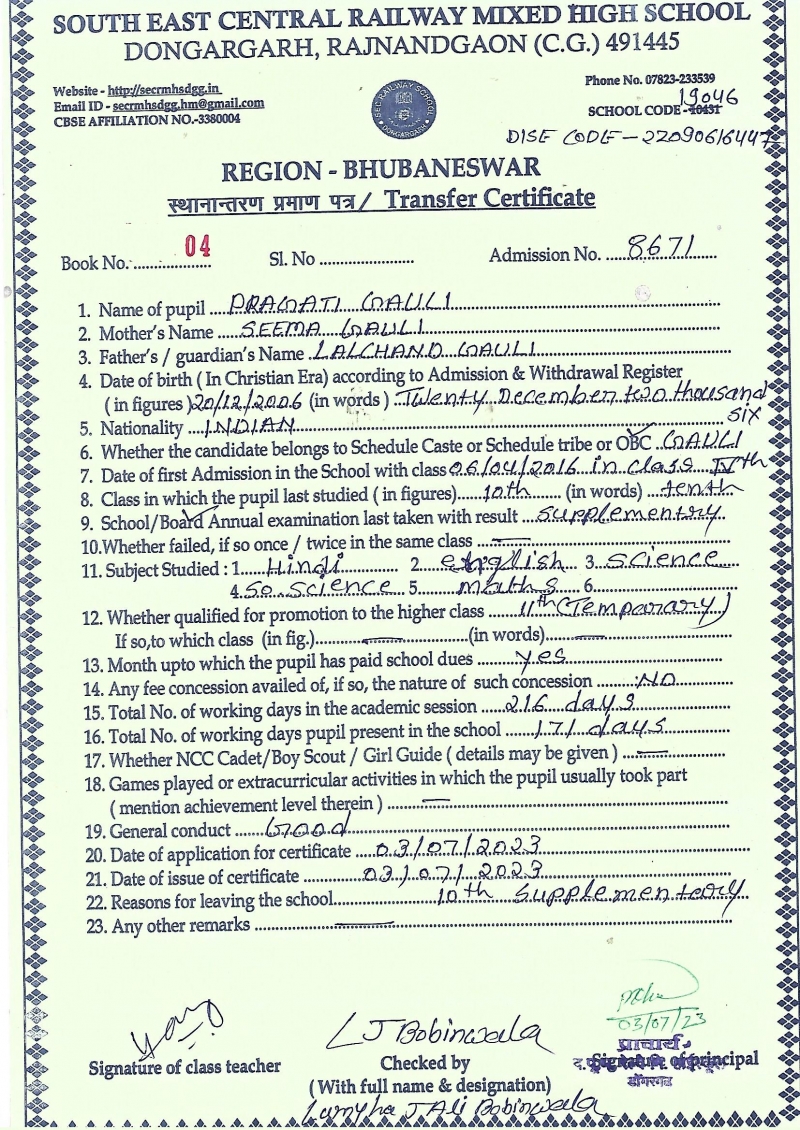 SOUTH EAST CENTRAL RAILWAY MIXED HIGH SCHOOL
DONGARGARH, RAJNANDGAON (C.G.) 491445
Website - http://secrmhsdgg.in
Email ID - secrmhsdgg.hm@gmail.com
CBSE AFFILIATION NO.-3380004
SEC RAILWAY SCHOOL
DONGARGARH
Phone No. 07823-233539
19046
SCHOOL CODE-10431
DISE CODE-22090616447
REGION - BHUBANESWAR
स्थानान्तरण प्रमाण पत्र / Transfer Certificate
Book No. 04 Sl. No Admission No. 8671
1. Name of pupil PRAGATI GAULI
2. Mother's Name SEEMA GAULI
3. Father's / guardian's Name LALCHAND GAULI
4. Date of birth ( In Christian Era) according to Admission & Withdrawal Register
( in figures ) 20/12/2006 (in words ) Twenty December two thousand
six
5. Nationality INDIAN
6. Whether the candidate belongs to Schedule Caste or Schedule tribe or OBC GAULI
7. Date of first Admission in the School with class 06/04/2016 in class IVth
8. Class in which the pupil last studied ( in figures) 10th (in words) tenth
9. School/Board Annual examination last taken with result supplementry
10.Whether failed, if so once / twice in the same class
11. Subject Studied : 1 Hindi 2 english 3 science
4 so. science 5 maths 6
12. Whether qualified for promotion to the higher class 11th (Temparary)
If so,to which class (in fig.) (in words)
13. Month upto which the pupil has paid school dues yes
14. Any fee concession availed of, if so, the nature of such concession NO
15. Total No. of working days in the academic session 216 days
16. Total No. of working days pupil present in the school 171 days
17. Whether NCC Cadet/Boy Scout / Girl Guide ( details may be given )
18. Games played or extracurricular activities in which the pupil usually took part
( mention achievement level therein )
19. General conduct Good
20. Date of application for certificate 03/07/2023
21. Date of issue of certificate 03/07/2023
22. Reasons for leaving the school 10th Supplementary
23. Any other remarks
03/07/23
LJ Bobinwala
प्राचार्य
Signature of class teacher Checked by Signature of principal
डोंगरगढ़
(With full name & designation)
J Ali Bobinwala